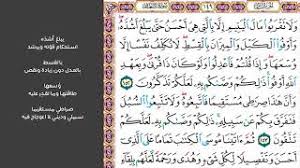 ١٤٩
وَلَا تَقْرَبُوا۟ مَالَ ٱلْيَتِيمِ إِلَّا بِٱلَّتِى هِىَ أَحْسَنُ حَتَّىٰ يَبْلُغَ أَشُدَّهُۥ
وَأَوْفُوا۟ ٱلْكَيْلَ وَٱلْمِيزَانَ بِٱلْقِسْطِ لَا نُكَلِّفُ نَفْسًا إِلَّا
وُسْعَهَا وَإِذَا قُلْتُمْ فَٱعْدِلُوا۟ وَلَوْ كَانَ ذَا قُرْبَىٰ وَبِعَهْدِ
ٱللَّهِ أَوْفُوا۟ ذَٰلِكُمْ وَصَّىٰكُم بِهِۦ لَعَلَّكُمْ تَذَكَّرُونَ ١٥٢
وَأَنَّ هَٰذَا صِرَٰطِى مُسْتَقِيمًا فَٱتَّبِعُوهُ وَلَا تَتَّبِعُوا۟ ٱلسُّبُلَ
فَتَفَرَّقَ بِكُمْ عَن سَبِيلِهِۦ ذَٰلِكُمْ وَصَّىٰكُم بِهِۦ لَعَلَّكُمْ
تَتَّقُونَ ١٥٣ ثُمَّ ءَاتَيْنَا مُوسَى ٱلْكِتَٰبَ تَمَامًا عَلَى ٱلَّذِىٓ
أَحْسَنَ وَتَفْصِيلًا لِّكُلِّ شَىْءٍ وَهُدًى وَرَحْمَةً
يبلغ أشده
استحكام قوته ويرشد
بالقسط
بالعدل دون زيادة ونقص
وسعها
طاقتها وما تقدر عليه
صراطي مستقيما
سبيلي وديني لا اعوجاج فيه